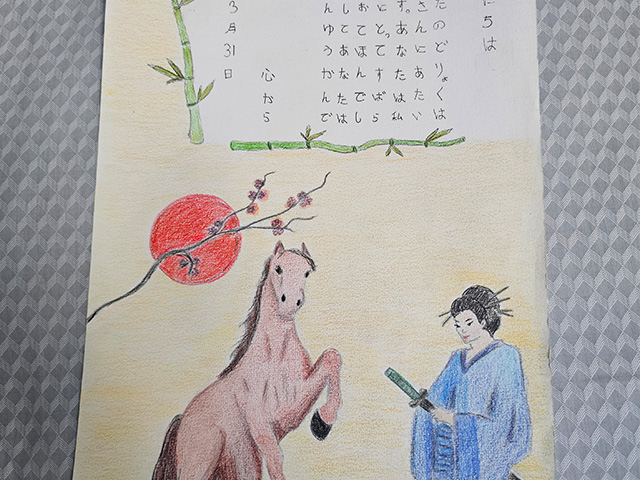 にちは
たのどりょくは
さんにあたい
す。あなたは私
にとってすばら
おてほんでし
してあなたは
んゆうかんで
心から
3月31日